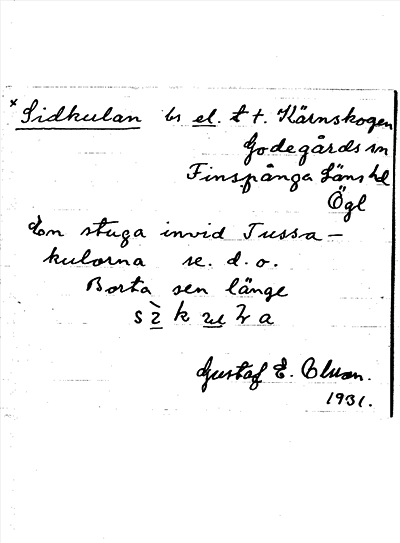 × Sidkulan bs el. t t. Kärnskogen
Godegårds sn
Finspånga Läns hd
Ögl
En stuga invid Tussa –
kulorna se. d. o.
Borta sen länge
Gustaf E. Olson.
1931.